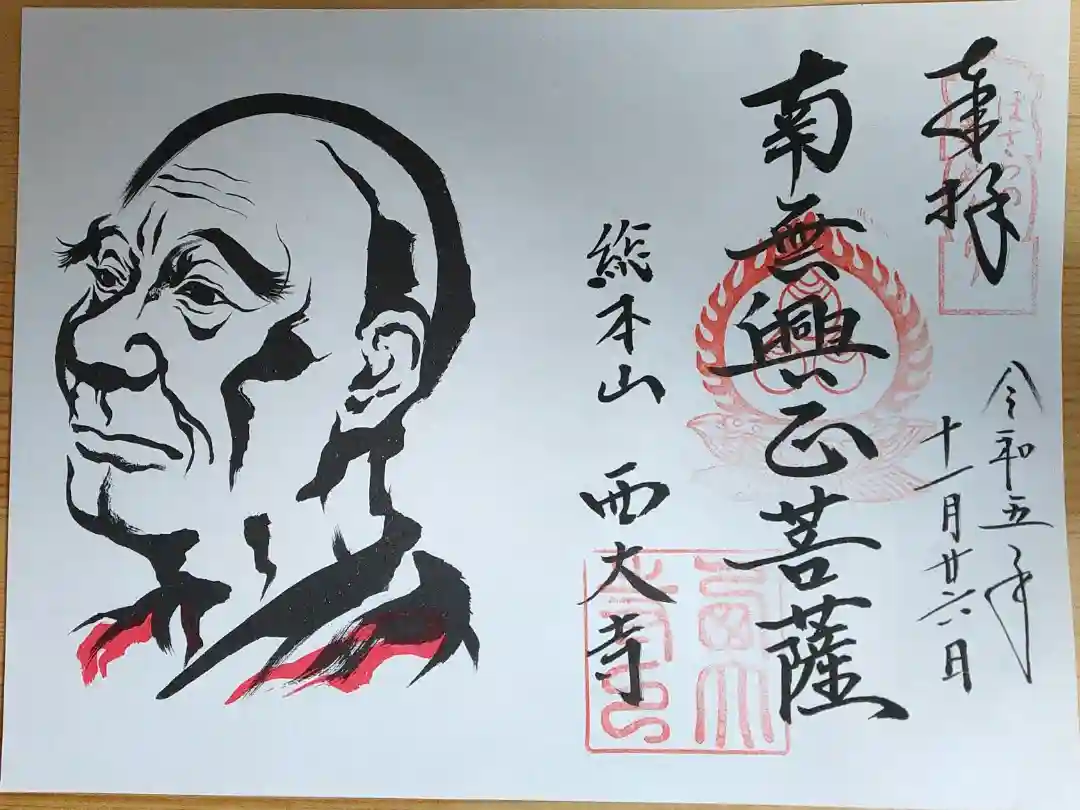 奉拝
令和五年
十一月廿六日
南無興正菩薩
総本山 西大寺